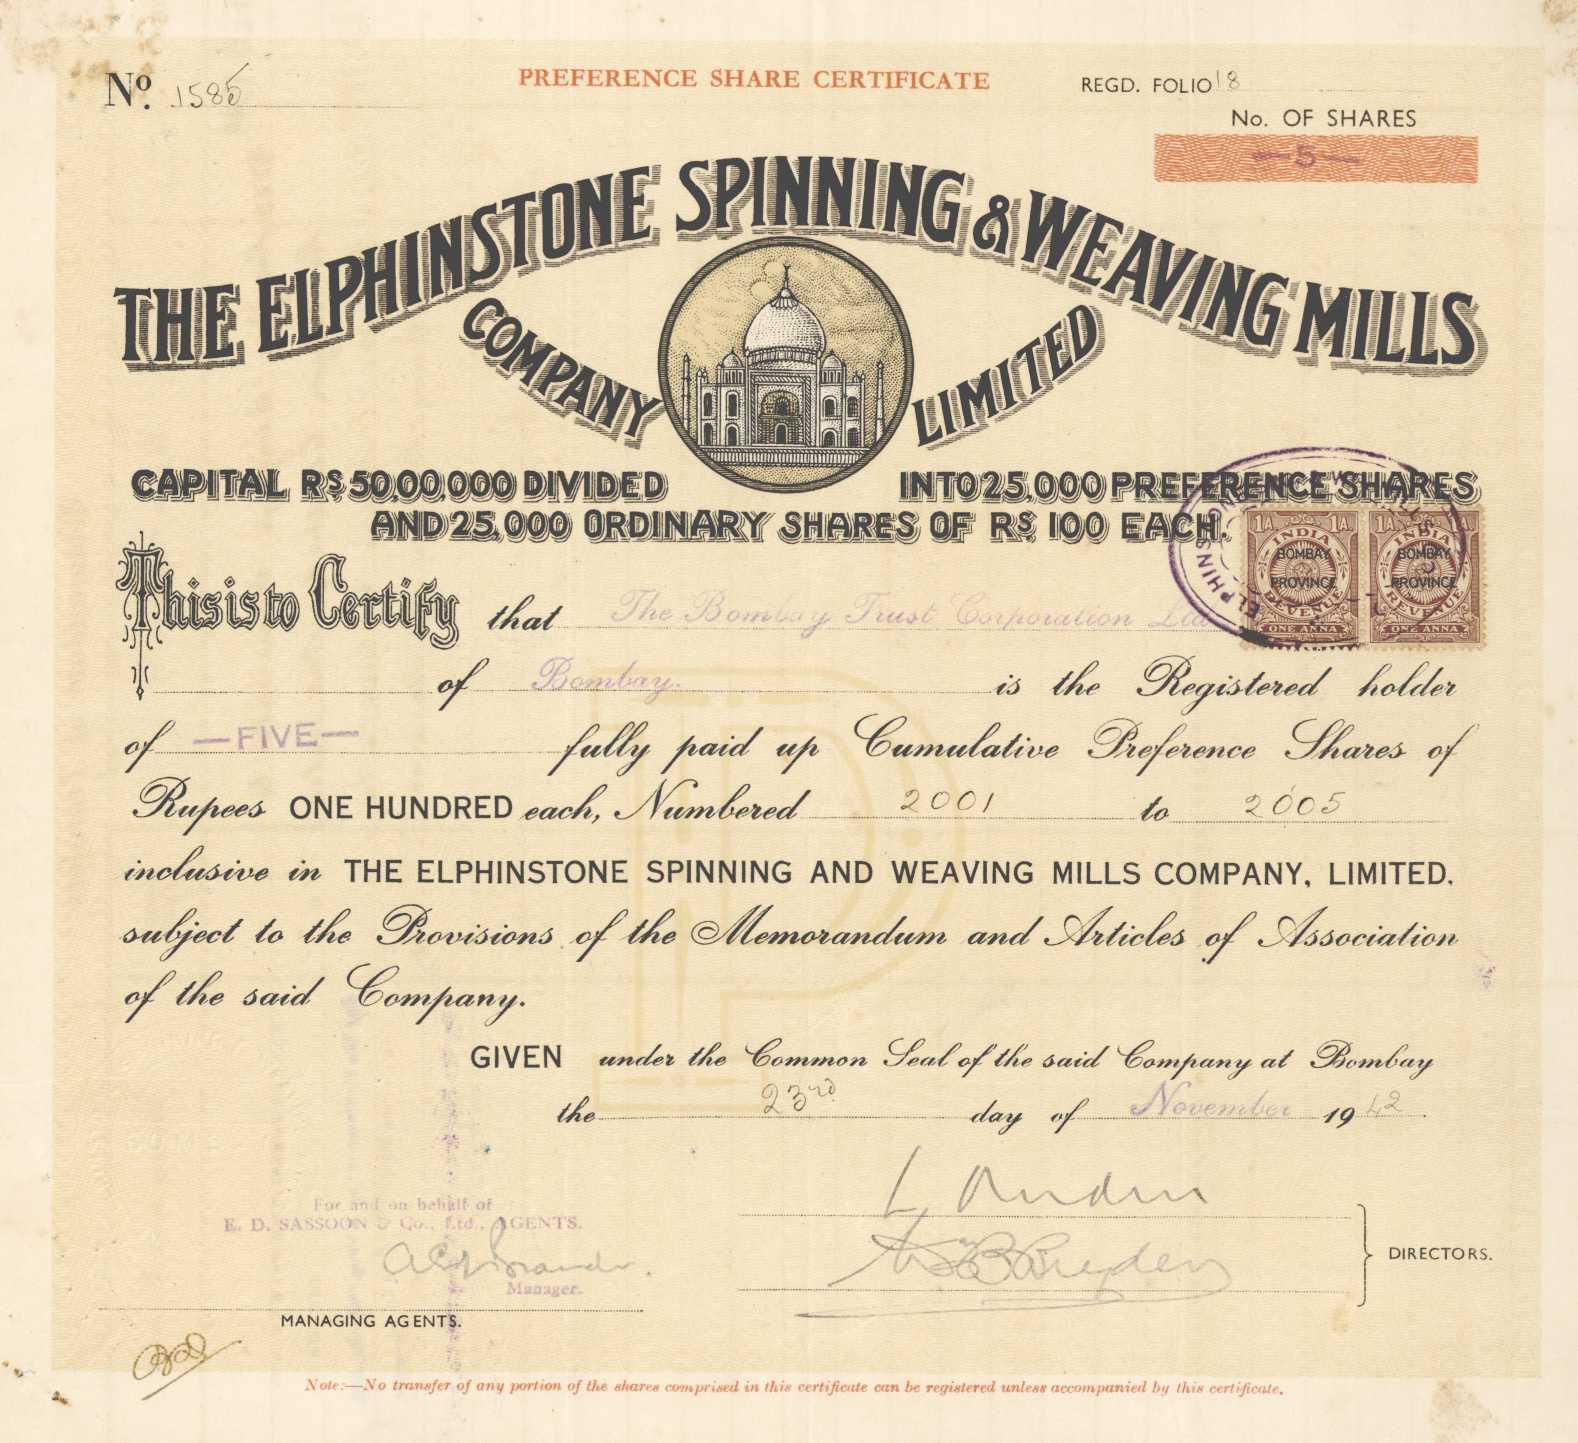 No. 1585
PREFERENCE SHARE CERTIFICATE
REGD. FOLIO 18
No. OF SHARES
—5—
THE ELPHINSTONE SPINNING & WEAVING MILLS
COMPANY LIMITED
CAPITAL RS 50,00,000 DIVIDED INTO 25,000 PREFERENCE SHARES
AND 25,000 ORDINARY SHARES OF RS 100 EACH.
1A. 1A. 1A. 1A.
INDIA INDIA
BOMBAY BOMBAY
PROVINCE PROVINCE
REVENUE REVENUE
ONE ANNA ONE ANNA
This is to Certify that The Bombay Trust Corporation Ltd
of Bombay. is the Registered holder
of —FIVE— fully paid up Cumulative Preference Shares of
Rupees ONE HUNDRED each, Numbered 2001 to 2005
inclusive in THE ELPHINSTONE SPINNING AND WEAVING MILLS COMPANY, LIMITED.
subject to the Provisions of the Memorandum and Articles of Association
of the said Company.
GIVEN under the Common Seal of the said Company at Bombay
the 23rd day of November 1942
For and on behalf of
E. D. SASSOON & Co., Ltd., AGENTS.
Manager.
DIRECTORS.
MANAGING AGENTS.
Note:—No transfer of any portion of the shares comprised in this certificate can be registered unless accompanied by this certificate.